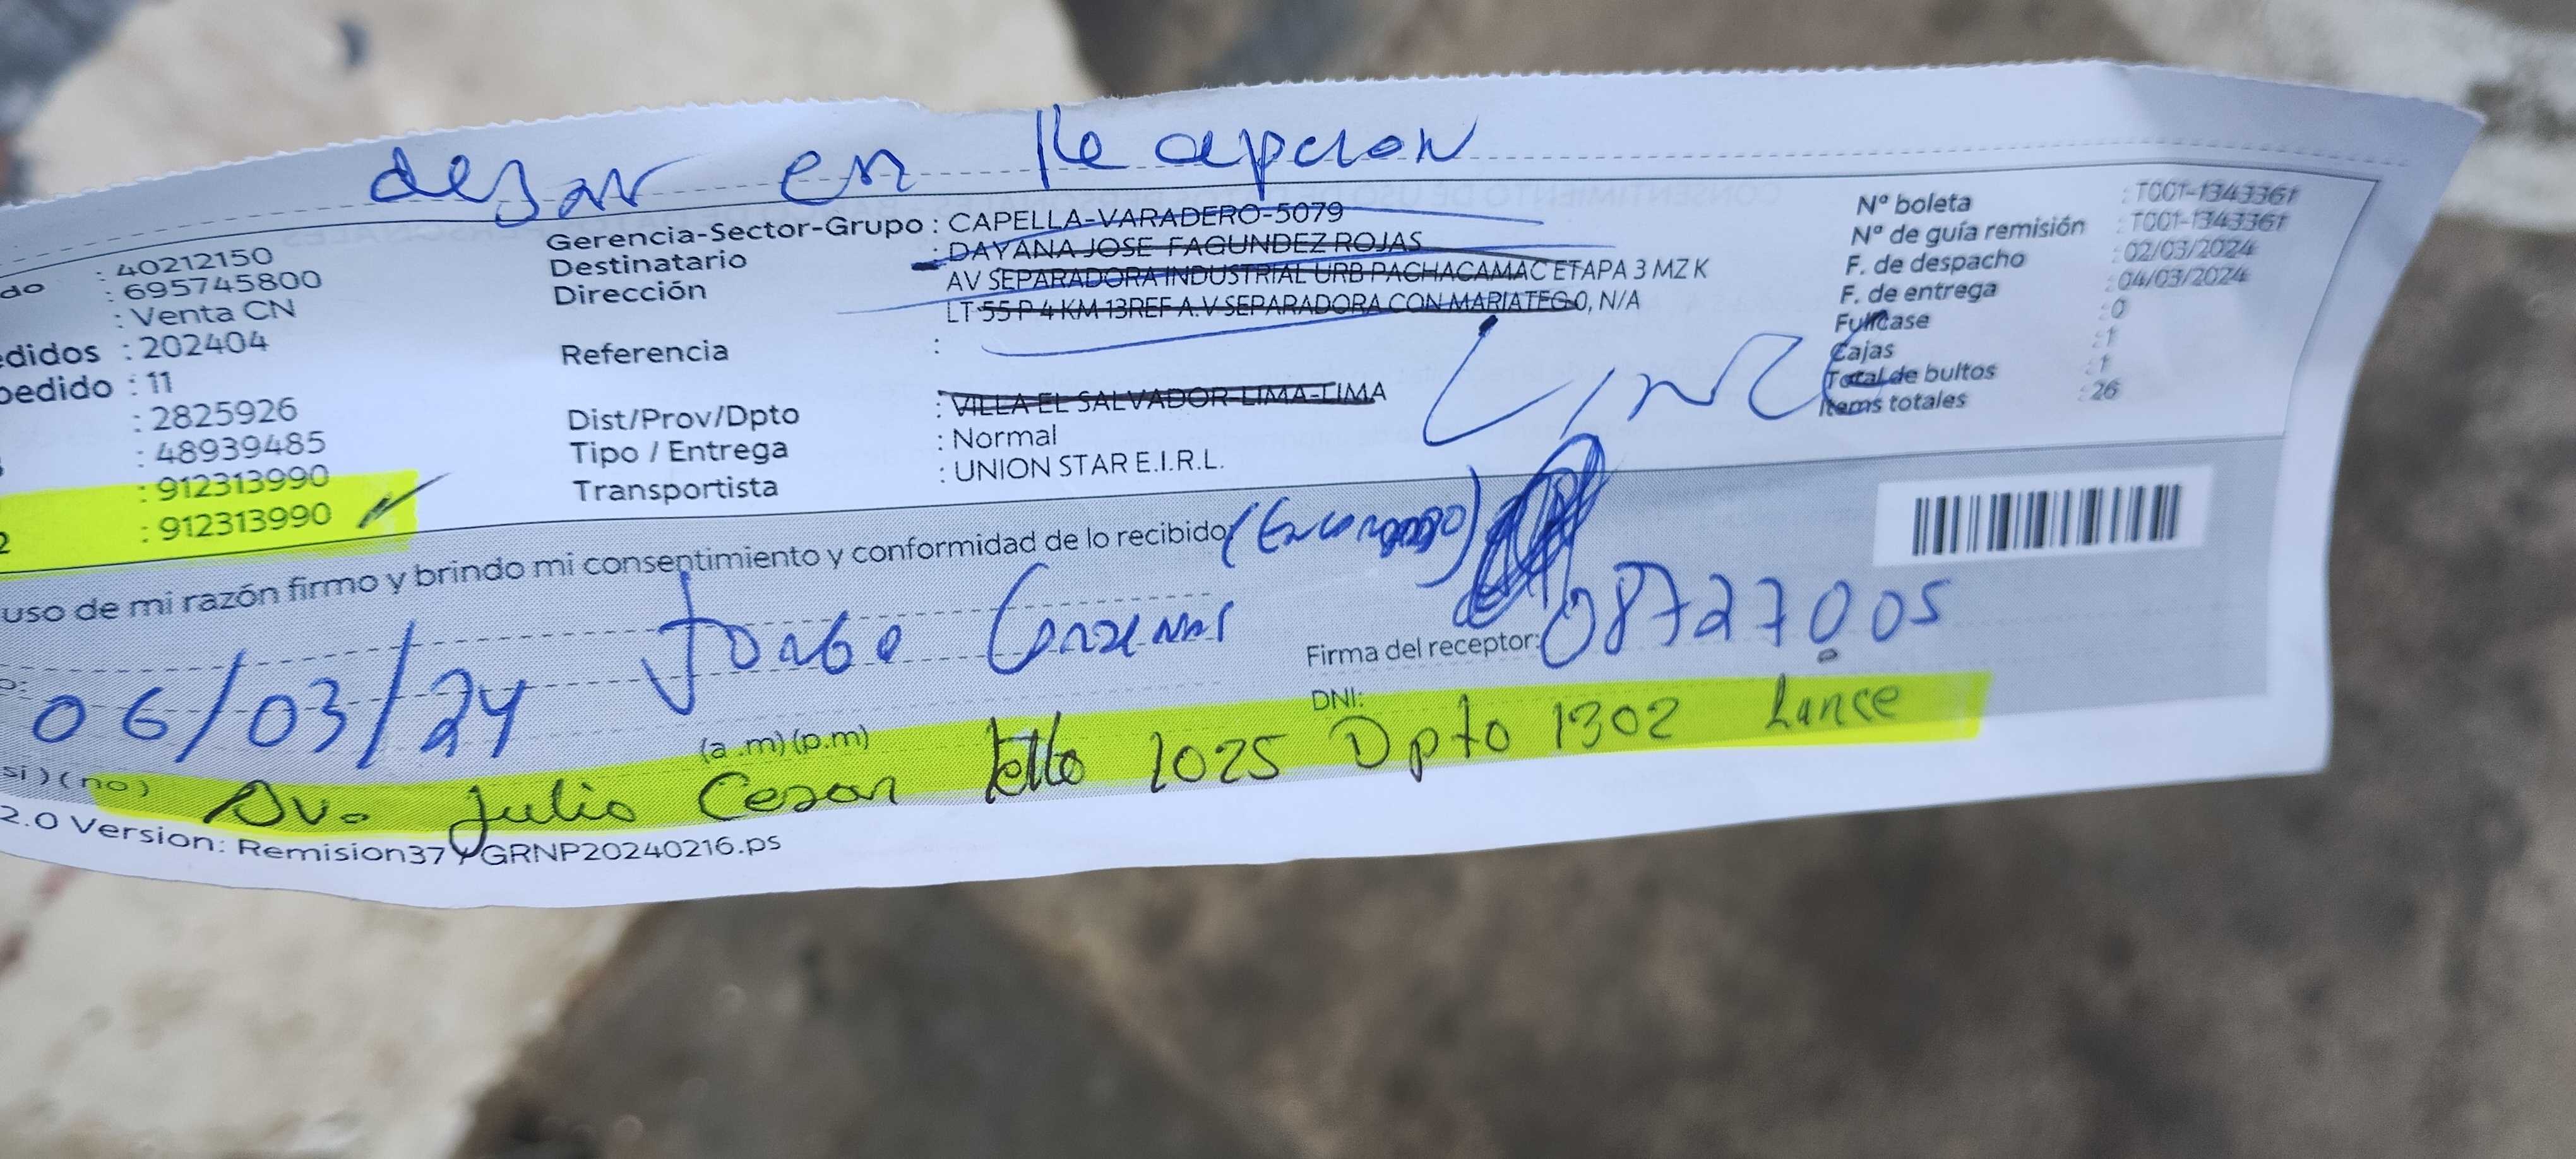 dejar en Recepcion
do : 40212150
: 695745800
: Venta CN
edidos : 202404
pedido : 11
: 2825926
: 48939485
: 912313990
2 : 912313990
Gerencia-Sector-Grupo : CAPELLA-VARADERO-5079
Destinatario : DAYANA JOSE FAGUNDEZ ROJAS
Dirección AV SEPARADORA INDUSTRIAL URB PACHACAMAC ETAPA 3 MZ K
LT 55 P 4 KM 13REF A.V SEPARADORA CON MARIATEGO, N/A
Referencia :
Dist/Prov/Dpto : VILLA EL SALVADOR-LIMA-LIMA
Tipo / Entrega : Normal
Transportista : UNION STAR E.I.R.L.
N° boleta : T001-1343361
N° de guía remisión : T001-1343361
F. de despacho : 02/03/2024
F. de entrega : 04/03/2024
Fullcase : 0
Cajas : 1
Total de bultos : 1
Items totales : 26
uso de mi razón firmo y brindo mi consentimiento y conformidad de lo recibido
06/03/24 Jorge Cardenas
Firma del receptor: 08727005
(a .m) (p.m) DNI:
si ) ( no )
Av. Julio Cesar tello 1025 Dpto 1302 Lince
2.0 Version: Remision37 / GRNP20240216.ps